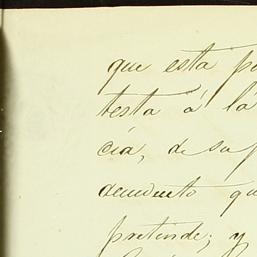 que esta po
testa á la
cia, de sa p
acuerdo qu
pretende; y